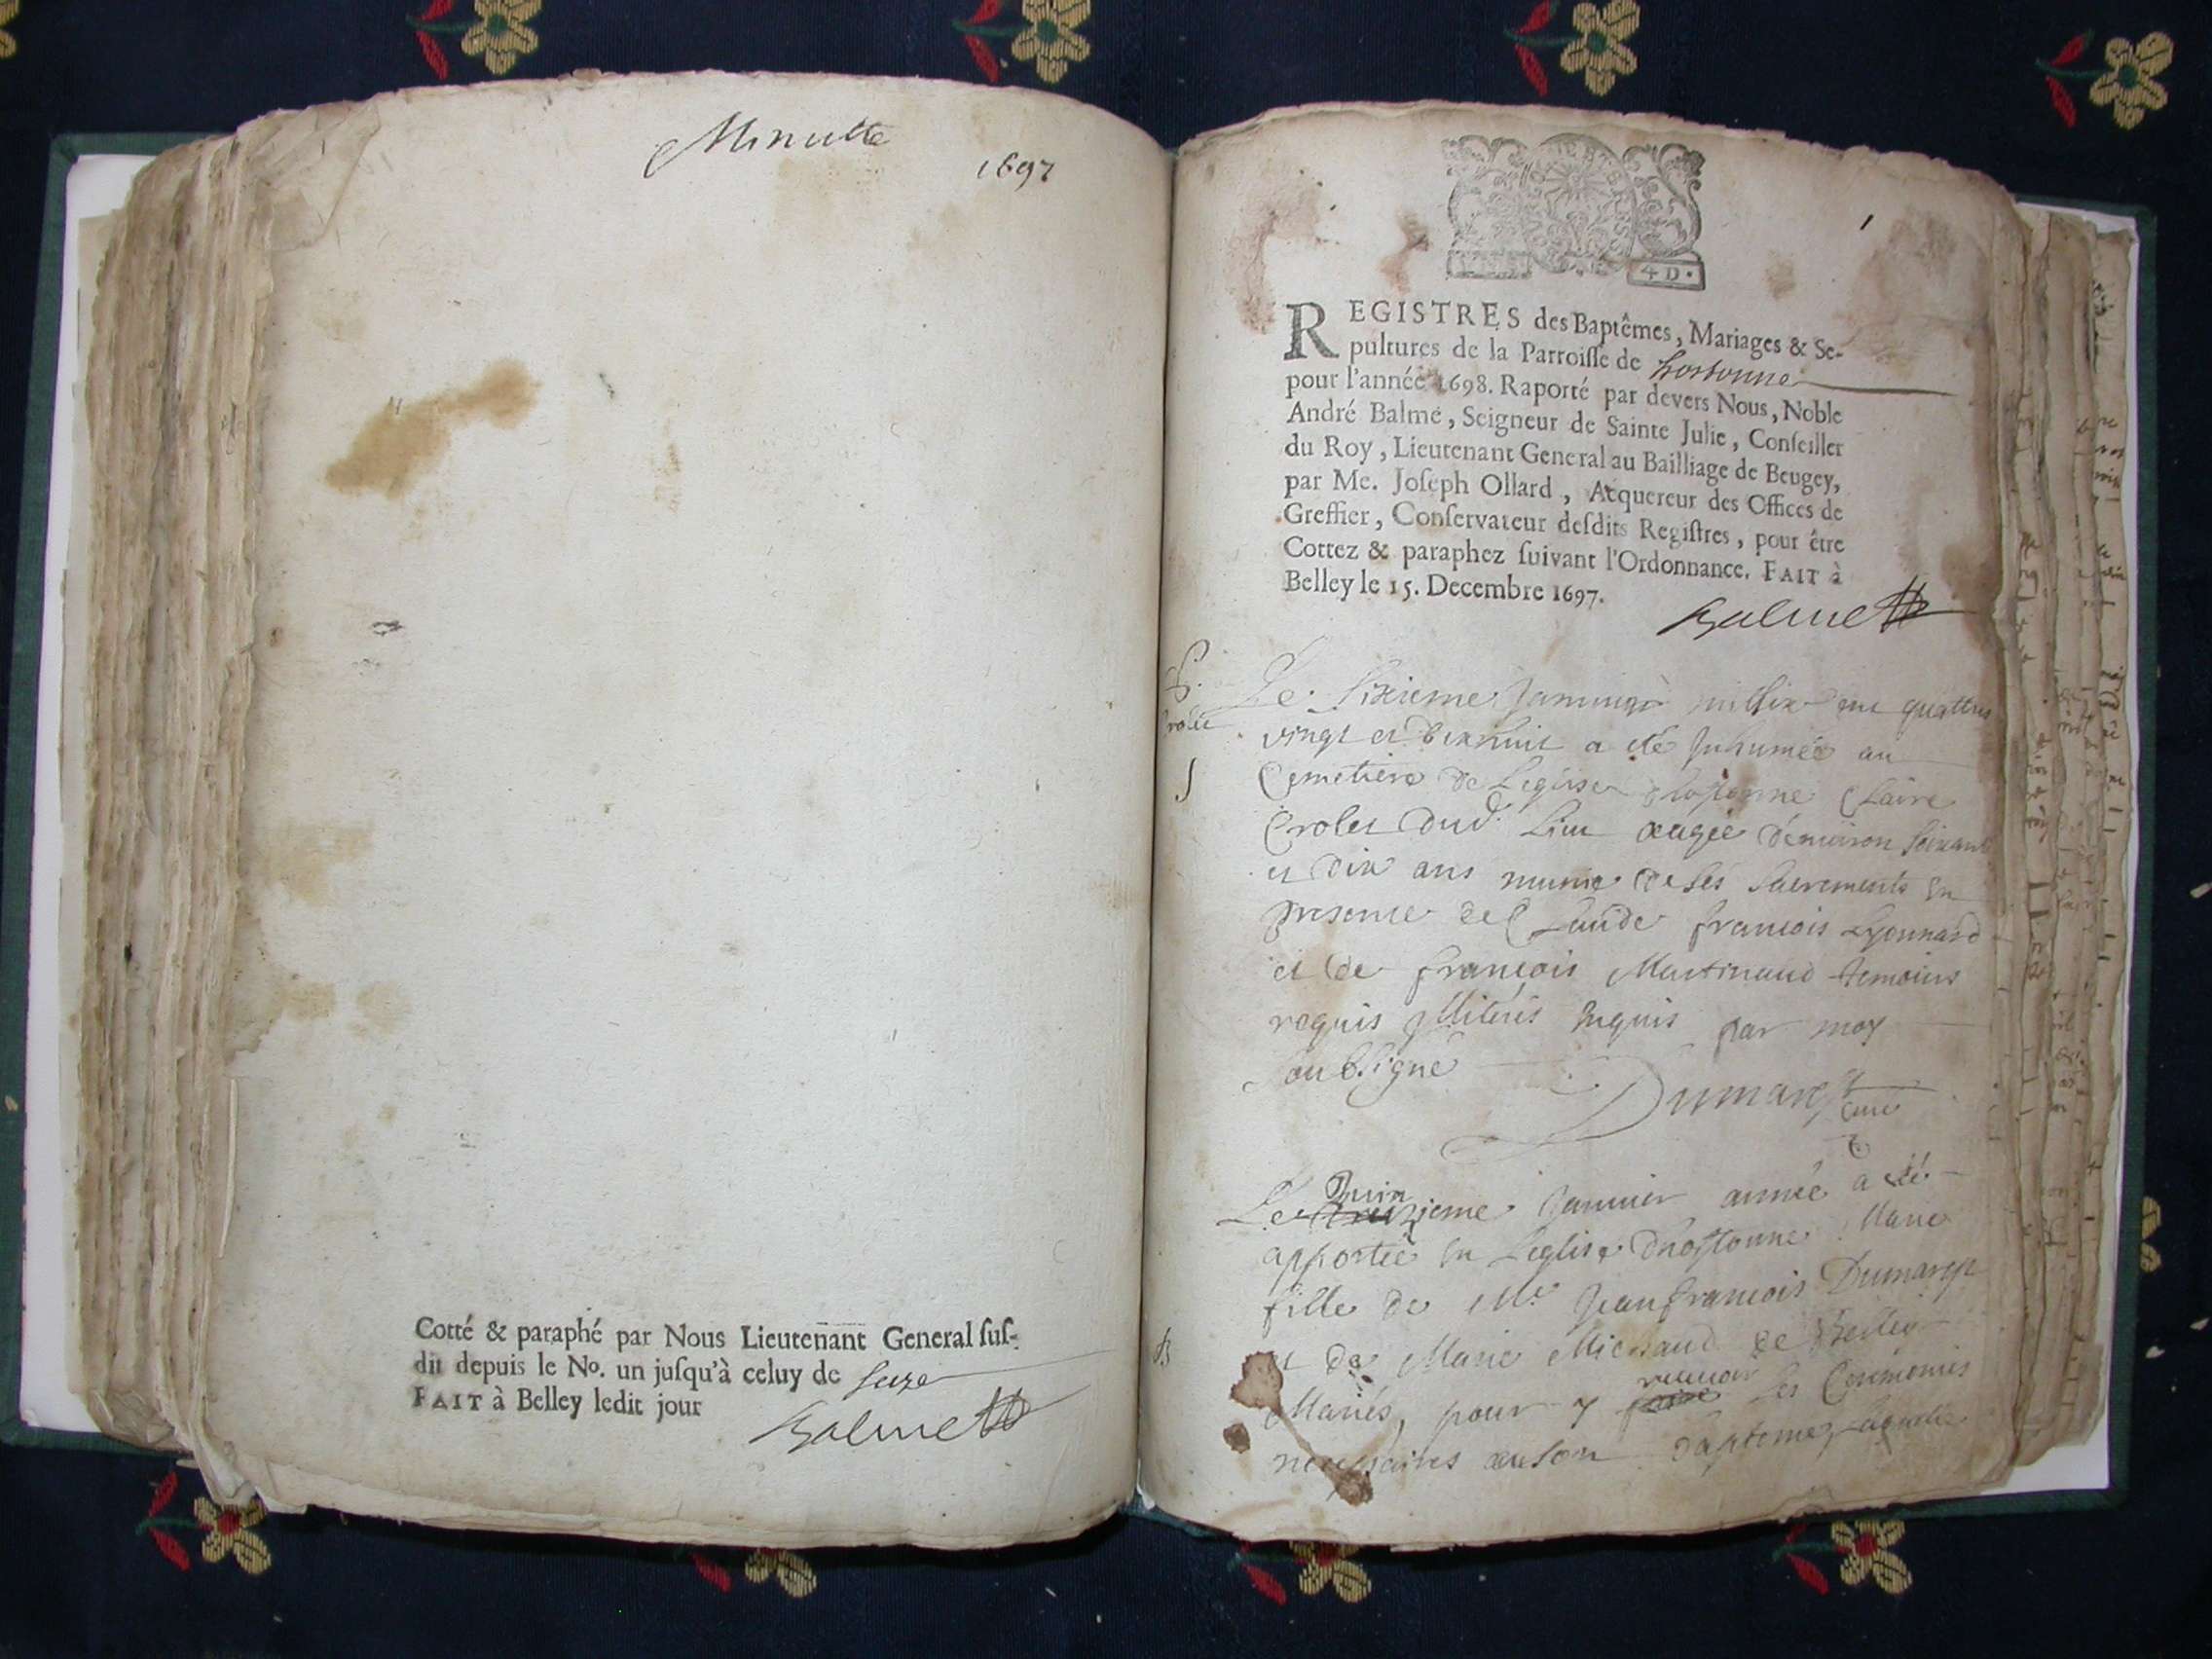 Minutte
1697
Cotté & paraphé par Nous Lieutenant General suſ-
dit depuis le No. un juſqu'à celuy de seize
FAIT à Belley ledit jour
Balme
1
4 D.
REGISTRES des Baptêmes, Mariages & Se-
pultures de la Parroiſſe de hostonne
pour l'année 1698. Raporté par devers Nous, Noble
André Balme, Seigneur de Sainte Julie, Conſeiller
du Roy, Lieutenant General au Bailliage de Beugey,
par Me. Joſeph Ollard, Acquereur des Offices de
Greffier, Conſervateur deſdits Regiſtres, pour être
Cottez & paraphez ſuivant l'Ordonnance. FAIT à
Belley le 15. Decembre 1697.
Balme
S.
Le sixieme quattre
vingt et dixhuit a été Inhumée au
Cemetiere de Leglise Claire
Crolet dud. Lieu aagée d'environ soixante
et dix ans munie de ses sacrements En
presence de Claude françois Lyonnard
et de françois Martinaud temoins
requis Illiterés Enquis par moy
soubsigné
Dumarest
curé
B
Le Quinzieme Janvier année a été
apportée En Leglise Dhostonne Marie
fille de Me. Jean françois Dumarest
et de Marie Michaud de Belley
Mariés, pour y recevoir les Ceremonies
necessaires a son bapteme, laquelle